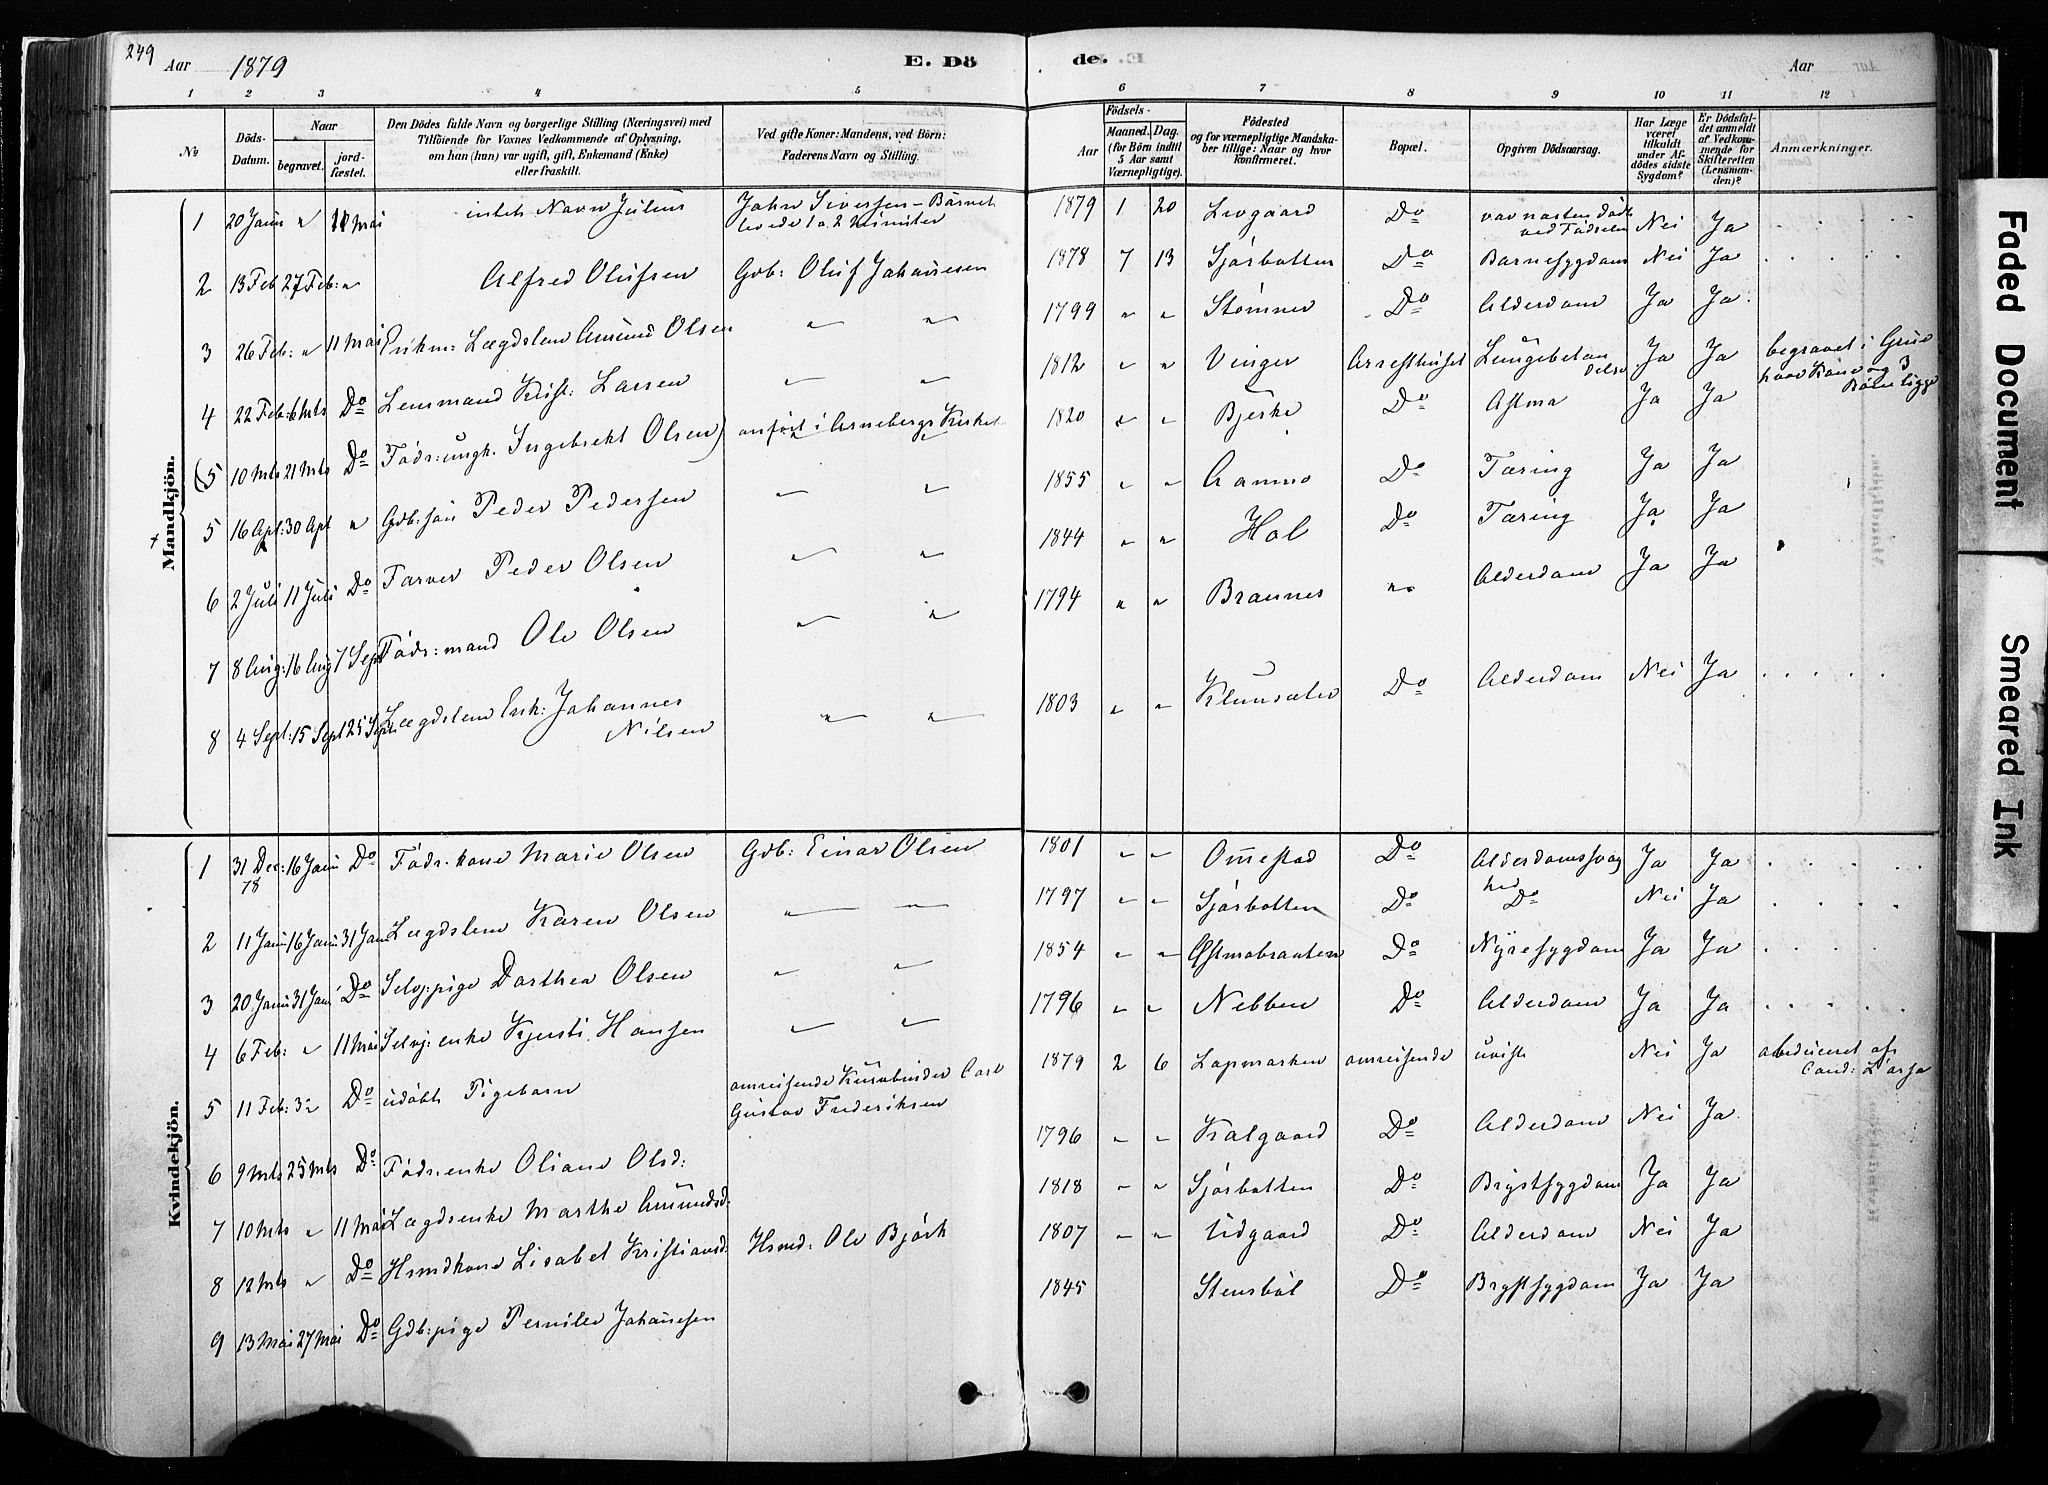 249
Aar 1879 E. Dö
1 2 3 4 5
№ Döds-Datum. Naar begravet. jord-fæstet. Den Dödes fulde Navn og borgerlige Stilling (Næringsvei) med Tilföiende for Voxnes Vedkommende af Oplysning, om han (hun) var ugift, gift, Enkemand (Enke) eller fraskilt. Ved gifte Koner: Mandens, ved Börn: Faderens Navn og Stilling.
Mandkjön.
1 20 Janu " 11 Mai intet Navn Julius John Siversen - Barnet
levede 1 a 2 Minuter
2 13 Feb 27 Feb: " Alfred Olufsen Gdb: Oluf Johannesen
3 26 Feb: " 11 Mai Enkm: Lægdslem Amund Olsen " "
4 22 Feb: 6 Mts Do Lensmand Krist: Larsen " "
(5 10 Mts 21 Mts Do Födr: ungk. Ingebrekt Olsen) anfört i Arneberg Kirke
5 16 Apl: 30 Apl " Gdb: sön Peder Pedersen " "
6 2 Juli 11 Juli Do Farver Peder Olsen " "
7 8 Aug: 16 Aug 7 Sept Födr: mand Ole Olsen " "
8 4 Sept: 15 Sept 25 Sept Lægdslem Enk: Johannes
Nilsen " "
Kvindekjön.
1 31 Dec: 78 16 Janu Do Födr. kone Marie Olsen Gdb: Einar Olsen
2 11 Janu 16 Janu 31 Jan Lægdslem Karen Olsen " "
3 20 Janu 31 Jan Do Selvj: pige Dorthea Olsen " "
4 6 Feb: " 11 Mai Selvj: enke Kjersti Hansen " "
5 11 Feb: Do udöbt Pigebarn omreisende Kurvbinder Carl
Gustav Frederiksen
6 9 Mts 25 Mts Do Födr: enke Oliane Olsd:
7 10 Mts " 11 Mai Lægdsenke Marthe Amundsd.
8 12 Mts " Do Hsmdkone Lisabet Kristiansd. Hsmd: Ole Björk
9 13 Mai 27 Mai Do Gdb: pige Pernille Johannesen
de. Aar
6 7 8 9 10 11 12
Aar Födsels- Maaned. Dag. (for Börn indtil 5 Aar samt Værnepligtige). Födested og for værnepligtige Mandskaber tillige: Naar og hvor konfirmeret. Bopæl. Opgiven Dödsaarsag. Har Læge været tilkaldt under Afdödes sidste Sygdom? Er Dödsfaldet anmeldt af Vedkommende for Skifteretten (Lensmanden)? Anmærkninger.
1879 1 20 Livgaard Do var næsten död
ved Födselen Nei Ja
1878 7 13 Sjörbotten Do Barnesygdom Nei Ja
1799 " " Stömner Do Alderdom Ja Ja
1812 " " Vinger Arresthuset Lungebetændelse Ja Ja begravet i Grue
hvor Kone og 3
Börn ligge
1820 " " Bjerke Do Astma Ja Ja
1855 " " Do Tæring Ja Ja
1844 " " Hol Do Tæring Ja Ja
1794 " " Brannes " Alderdom Ja Ja
1803 " " Klunsæter Do Alderdom Nei Ja
1801 " " Ommestad Do Alderdomssvaghed Ja Ja
1797 " " Sjörbotten Do Do Nei Ja
1854 " " Østmobraaten Do Nyresygdom Ja Ja
1796 " " Nebben Do Alderdom Ja Ja
1879 2 6 Lapmarken omreisende uvist Nei Ja obduceret af
Cand:
1796 " " Kalgaard Do Alderdom Nei Ja
1818 " " Sjörbotten Do Brystsygdom Ja Ja
1807 " " Udgaard Do Alderdom Nei Ja
1845 Stensböl Do Brystsygdom Ja Ja
Faded Document
Smeared Ink